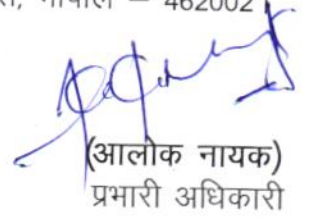 भोपाल – 462002
(आलोक नायक)
प्रभारी अधिकारी